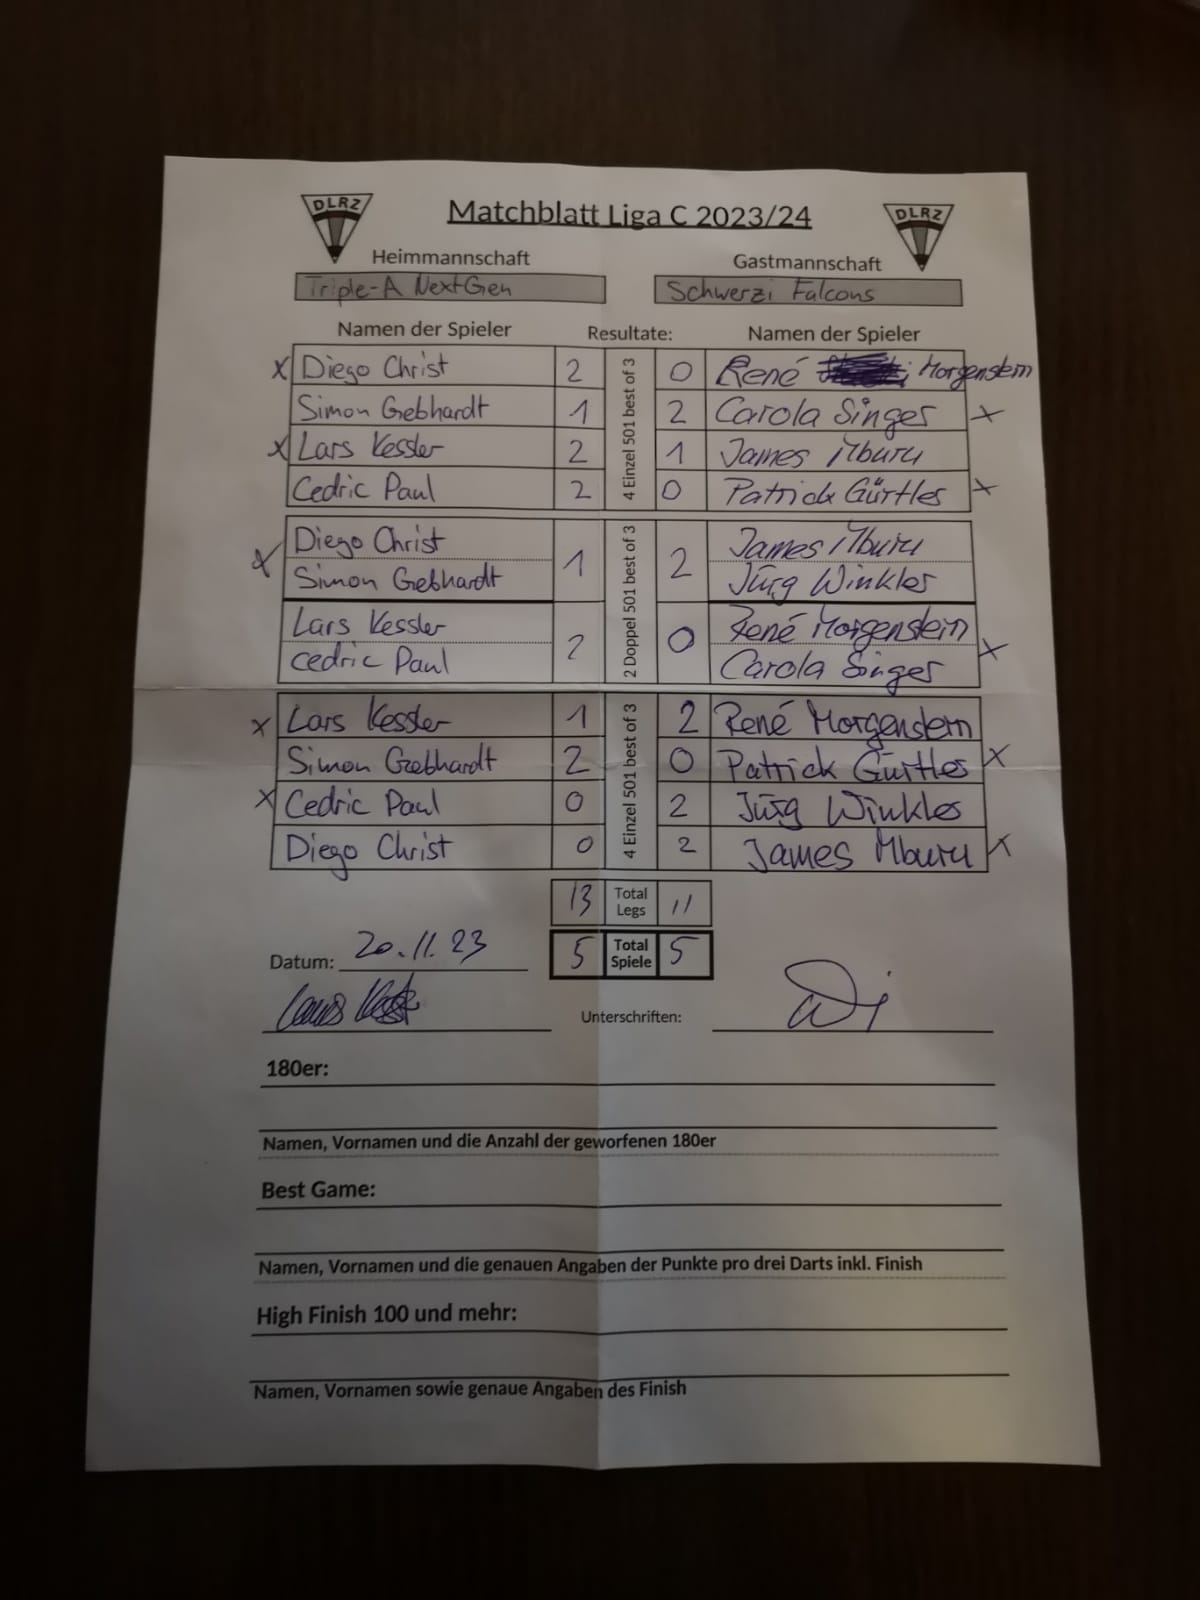 DLRZ Matchblatt Liga C 2023/24 DLRZ
Heimmannschaft Gastmannschaft
Triple-A NextGen Schwerzi Falcons
Namen der Spieler Resultate: Namen der Spieler
4 Einzel 501 best of 3
x Diego Christ 2 0 René Morgenstern
Simon Gebhardt 1 2 Carola Singer x
x Lars Kessler 2 1 James Mburu
Cedric Paul 2 0 Patrick Gürtler x
2 Doppel 501 best of 3
x Diego Christ 1 2 James Mburu
Simon Gebhardt Jürg Winkler
Lars Kessler 2 0 René Morgenstern x
Cedric Paul Carola Singer
4 Einzel 501 best of 3
x Lars Kessler 1 2 René Morgenstern
Simon Gebhardt 2 0 Patrick Gürtler x
x Cedric Paul 0 2 Jürg Winkler
Diego Christ 0 2 James Mburu x
13 Total Legs 11
5 Total Spiele 5
Datum: 20.11.23
Unterschriften:
180er:
Namen, Vornamen und die Anzahl der geworfenen 180er
Best Game:
Namen, Vornamen und die genauen Angaben der Punkte pro drei Darts inkl. Finish
High Finish 100 und mehr:
Namen, Vornamen sowie genaue Angaben des Finish